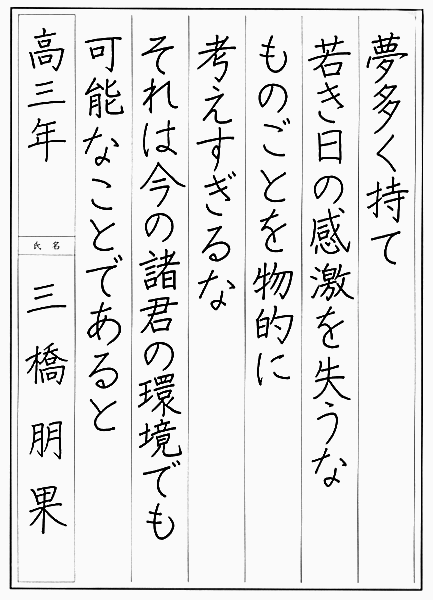 夢多く持て
若き日の感激を失うな
ものごとを物的に
考えすぎるな
それは今の諸君の環境でも
可能なことであると
高三年
氏名
三橋朋果